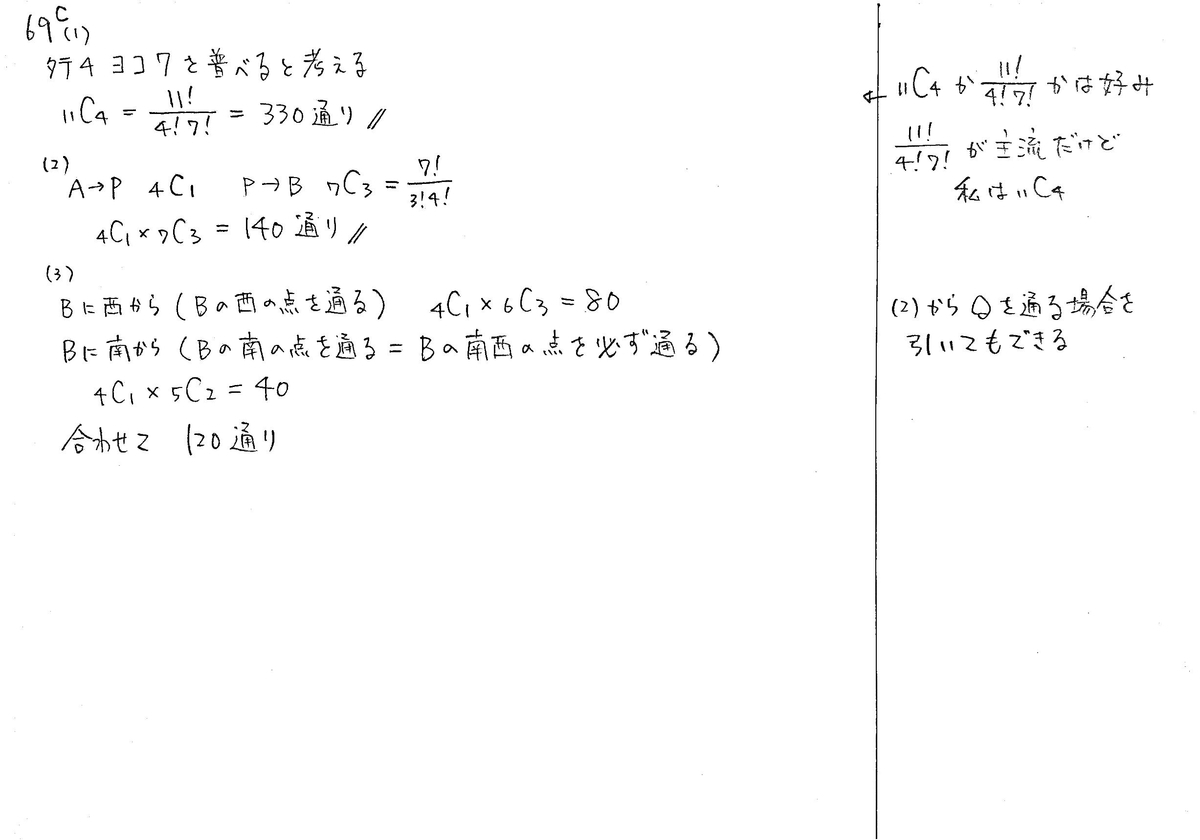 69C(1)
タテ4 ヨコ7を並べると考える
₁₁C₄ = 11!/4!7! = 330通り//
(2)
A→P ₄C₁ P→B ₇C₃ = 7!/3!4!
₄C₁×₇C₃ = 140通り//
(3)
Bに西から(Bの西の点を通る) ₄C₁×₆C₃ = 80
Bに南から(Bの南の点を通る = Bの南西の点を必ず通る)
₄C₁×₅C₂ = 40
合わせて 120通り
← ₁₁C₄ か 11!/4!7! かは好み
11!/4!7! が主流だけど
私は ₁₁C₄
(2)からQを通る場合を
引いてもできる